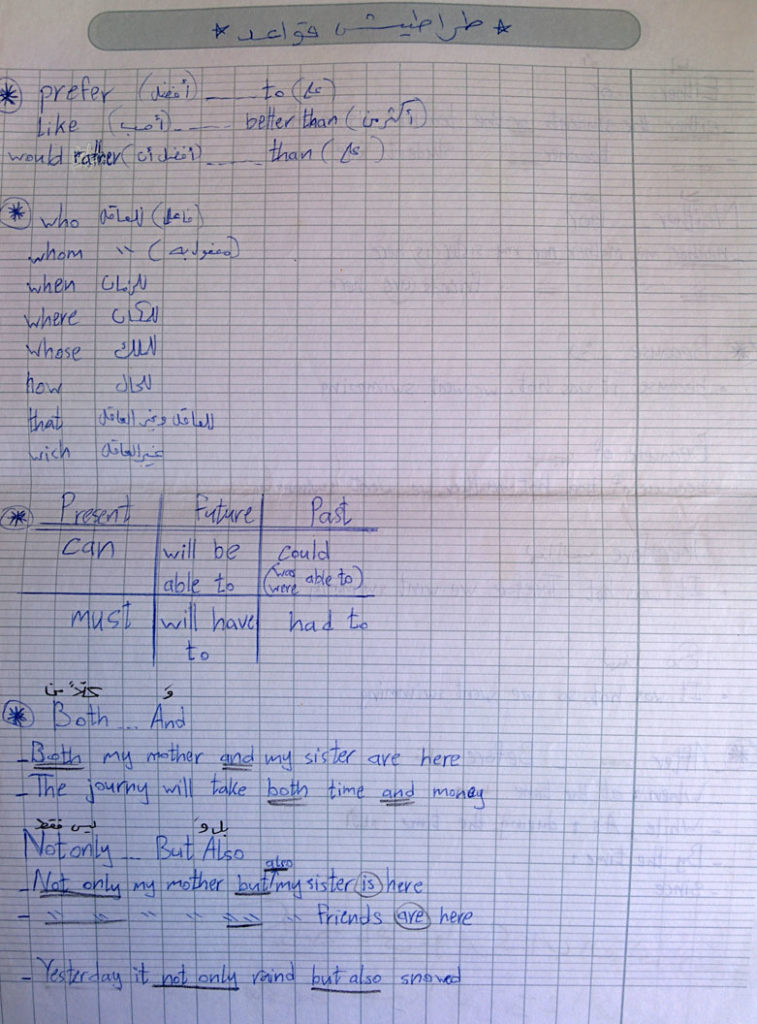 * طراطيش قواعد *
* prefer (أفضل) ____ to (على)
Like (أحب) ____ better than (أكثر من)
would rather (أفضل أن) ____ than (على)
* who للعاقل (فاعل)
whom " (مفعول به)
when للزمان
where للمكان
whose للملك
how للحال
that للعاقل وغير العاقل
wich غير العاقل
* Present Future Past
can will be able to could (was were able to)
must will have to had to
كلاً من وَ
* Both ... And
- Both my mother and my sister are here
- The journy will take both time and money
ليس فقط بل و
Not only ... But Also
- Not only my mother but also my sister is here
- " " " " " " friends are here
- Yesterday it not only raind but also snowed